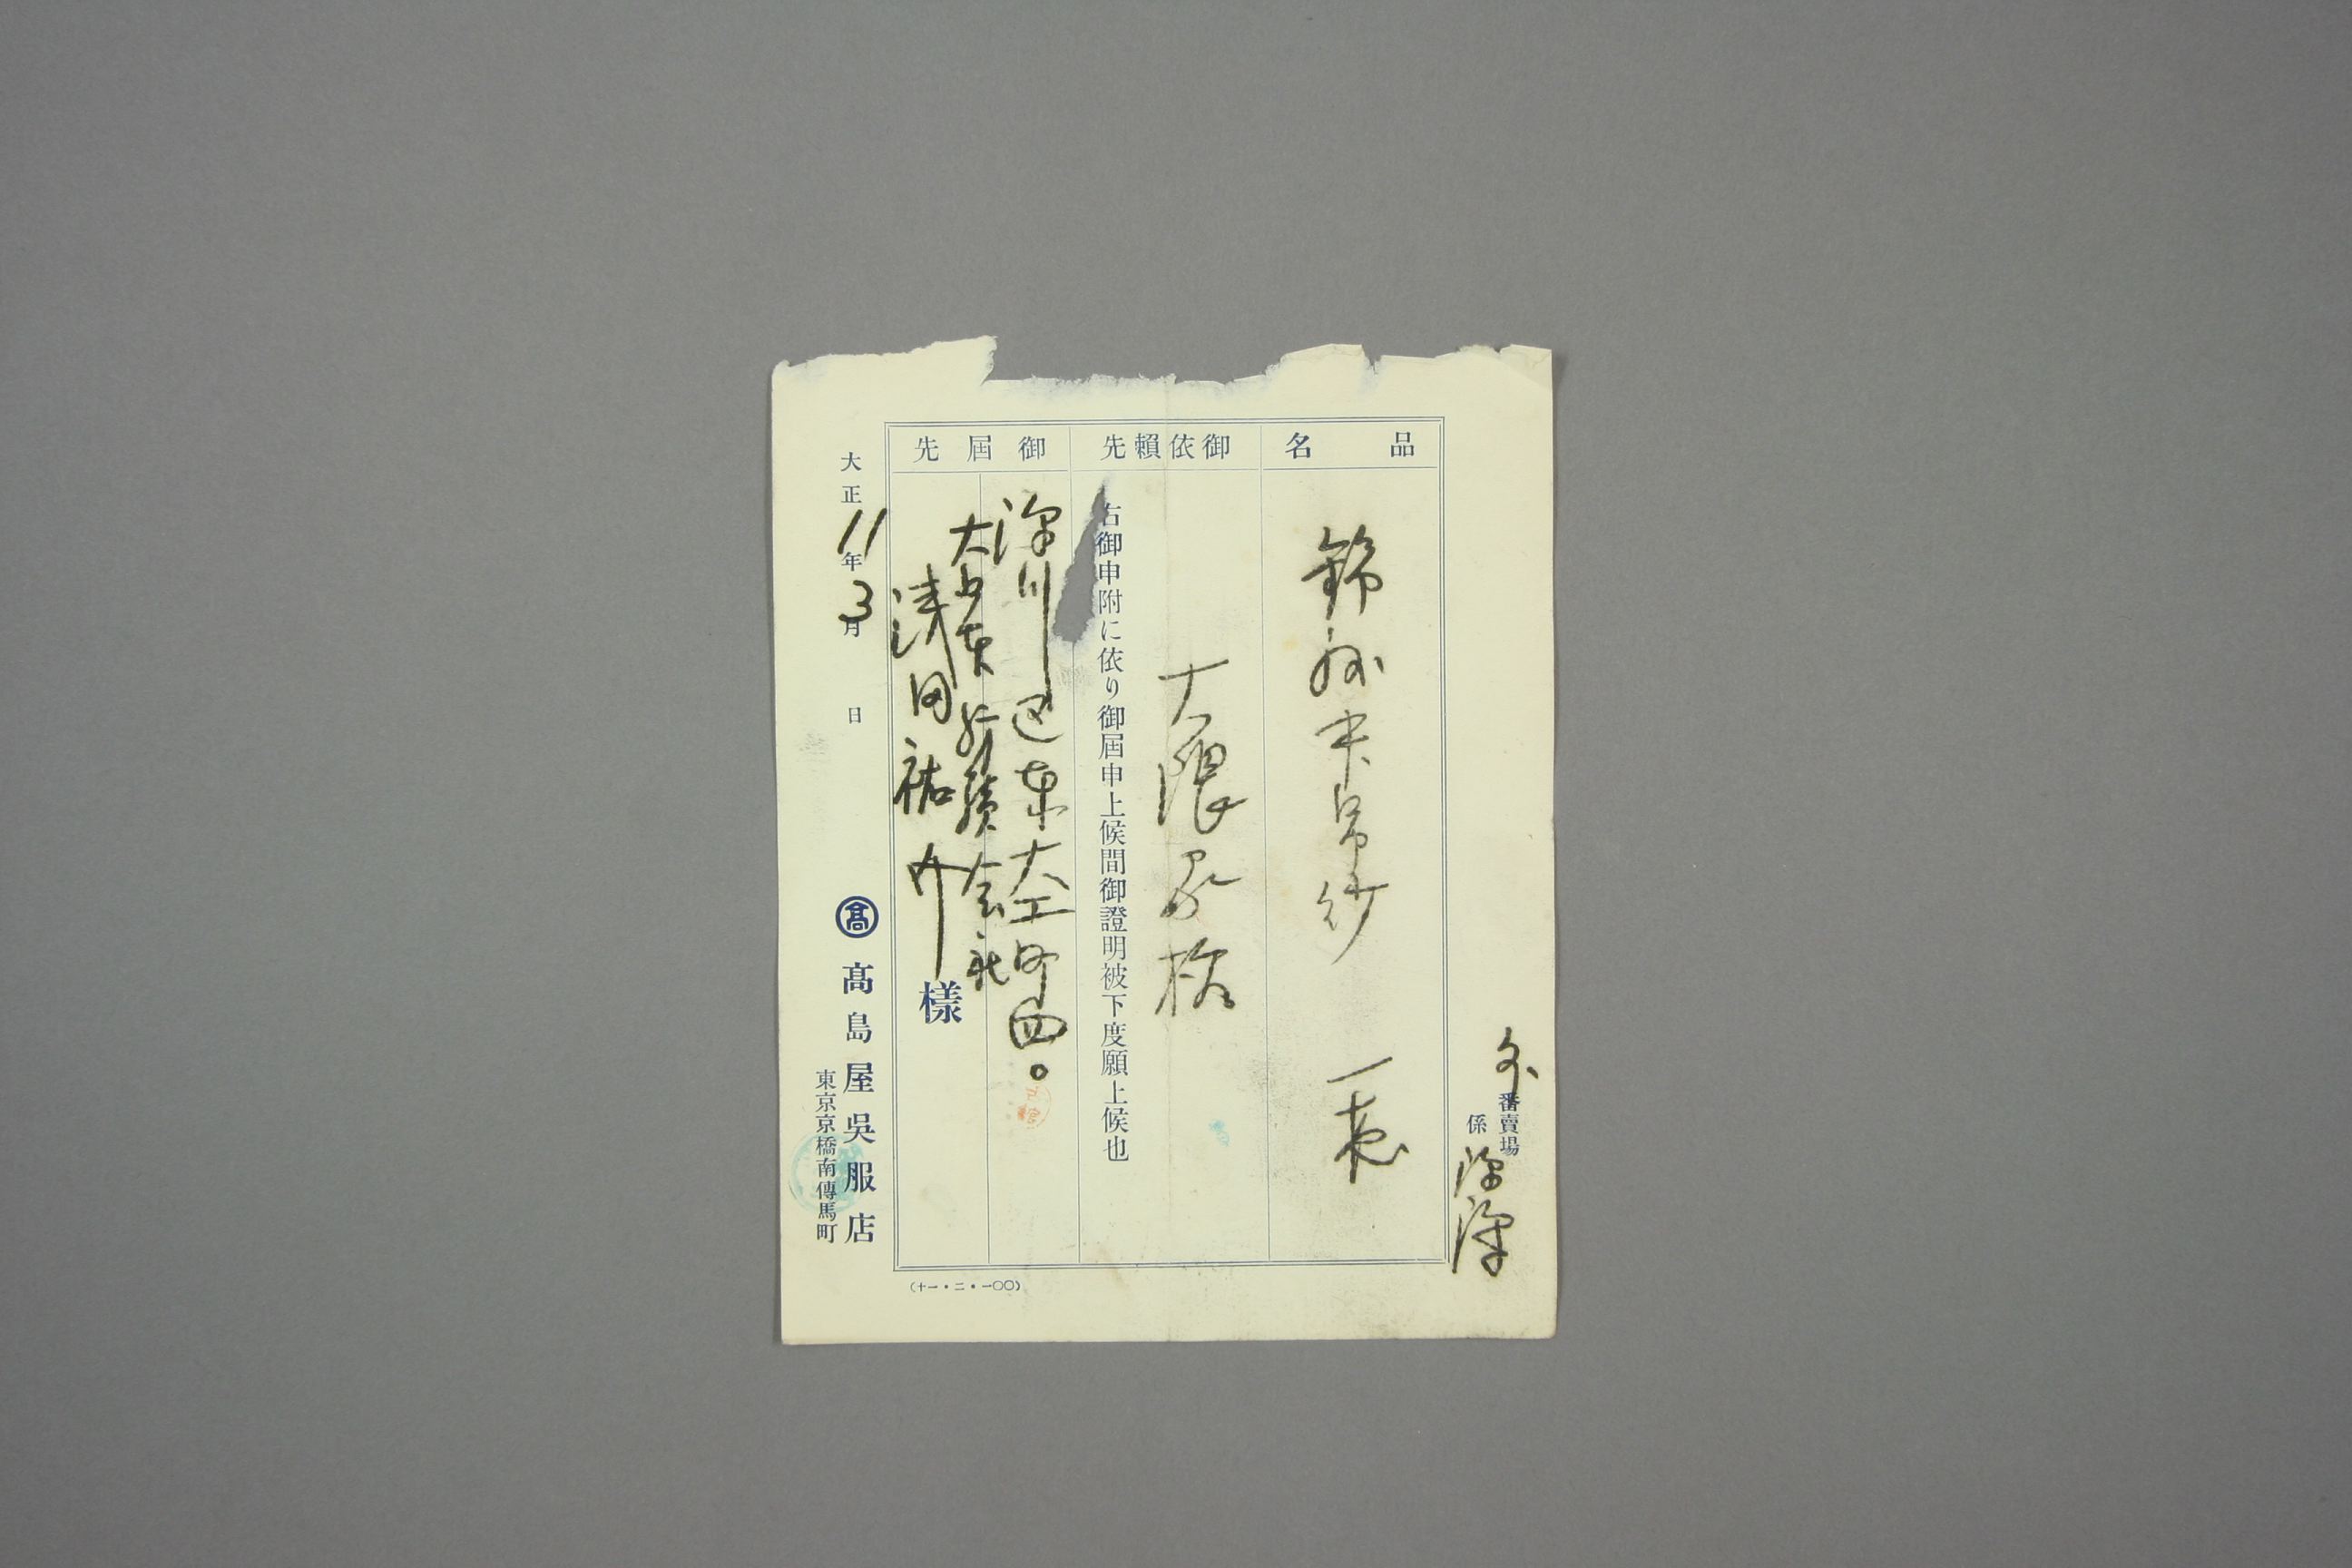 番賣場
係
品名
錦
紗
一
御依賴先
大隈家様
右御申附に依り御屆申上候間御證明被下度願上候也
御屆先
深川區東大工町四〇
大日本紡績会社
津田祐介様
大正11年3月日
髙
髙島屋吳服店
東京京橋南傳馬町
(十一・二・一〇〇)